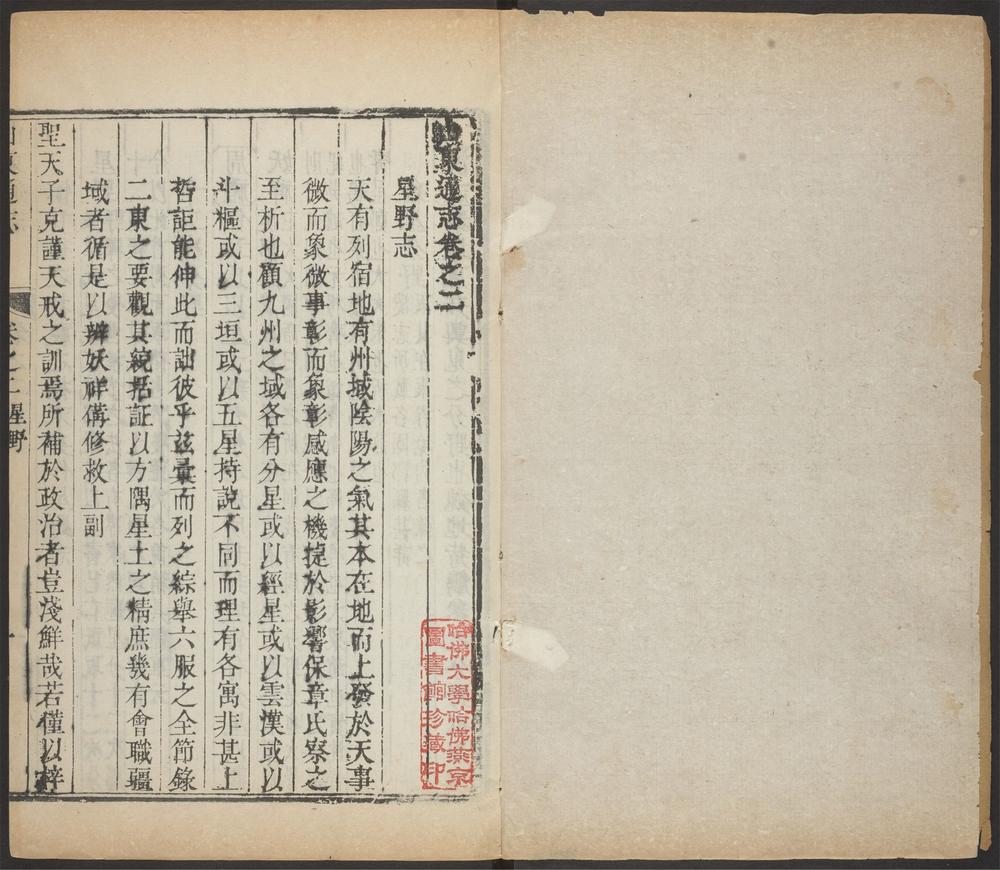 山東通志卷之二
星野志
天有列宿地有州域陰陽之氣其本在地而上發於天事
微而象微事彰而象彰感應之機捷於影響保章氏察之
至析也顧九州之域各有分星或以經星或以雲漢或以
斗樞或以三垣或以五星持說不同而理有各寓非甚上
哲詎能伸此而詘彼乎茲彙而列之綜舉六服之全節錄
二東之要觀其綂括証以方隅星土之精庶幾有會職疆
域者循是以辨妖祥偹修救上副
聖天子克謹天戒之訓焉所補於政治者豈淺鮮哉若僅以梓
山東通志
卷之二星野
一
哈佛大學哈佛燕京
圖書館珍藏印